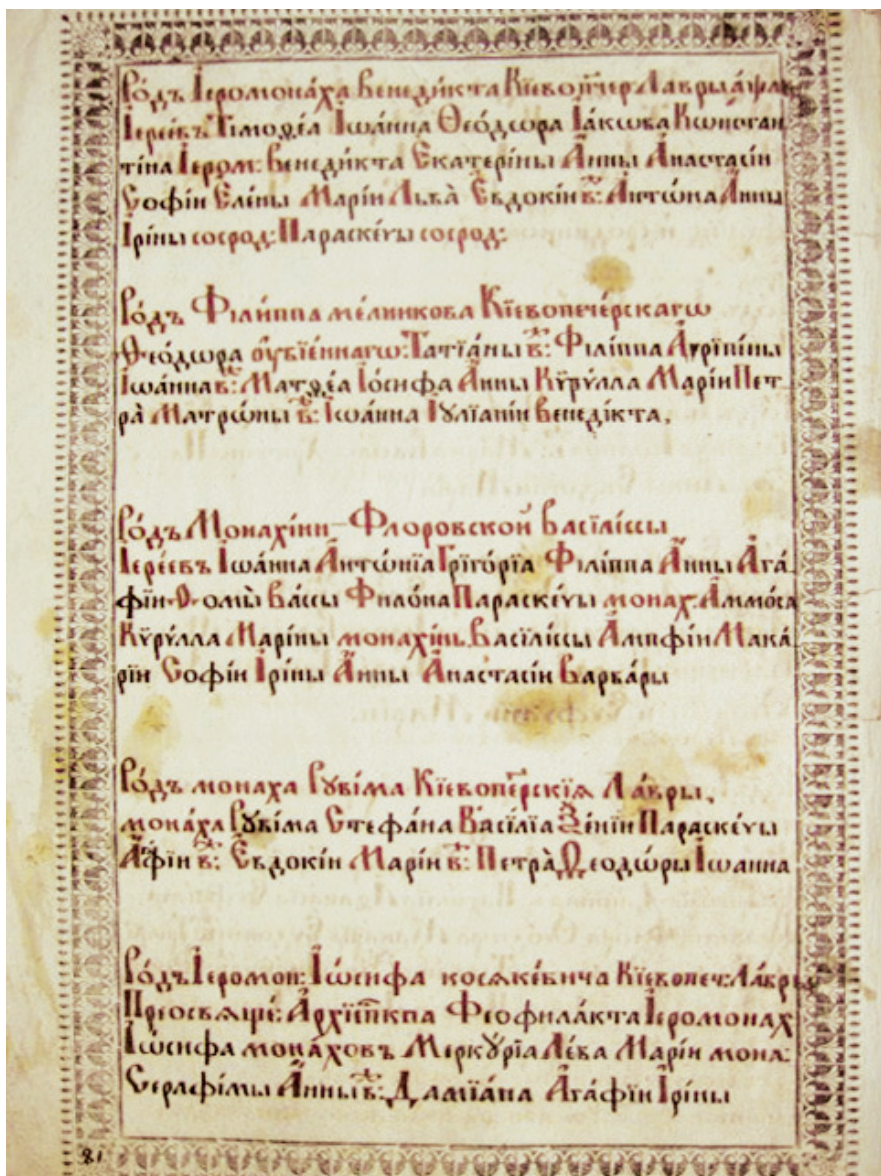 Ро́дъ Іеромона́ха Венеди́кта Кїевопече́р Лавры
Іере́евъ Тїмоѳе́а Іωа́нна Ѳео́дωра Іа́кωва Кωнстан
ті́на Іером: Венеди́кта Екатері́ны А҆́нны А҆настасі́и
Софі́и Еле́ны Марі́и Льва̀ Е҆вдокі́и в҃: А҆нтώна А҆́нны
Ірі́ны сосрод: Параске́ѵы сосрод:
Ро́дъ Філи́ппа ме́лникова Кїевопече́рскагω
Ѳео́дωра оу҆бїе́ннагω: Татїа́ны в҃: Філі́ппа А҆грїпі́ны
Іωа́нна в҃: Матѳе́а Іо́сифа А҆́нны Кѷрі́лла Марі́и Пет
ра̀ Матрώны в҃: Іωа́нна Іулїані́и Венеді́кта,
Ро́дъ Мона́хіни-Флоровской Васїлі́ссы
Іере́евъ Іωа́нна А҆нтώнїа Грїго́рїа Філі́ппа А҆́нны А҆га́
фїи Ѳомы̀ Ва́ссы Філо́на Параске́ѵы монах: А҆ммо́са
Кѷрі́лла Марі́ны мона́хінь. Васїлі́ссы А҆мпфі́и Мака́
рїи Софі́и Ірі́ны А҆́нны А҆настасі́и Варва́ры
Ро́дъ монаха Руві́ма Кїевопеⷱ҇рскїѧ Ла́вры,
мона́ха Руві́ма Стефа́на Васі́лїа Ѯе́нїи Параске́ѵы
А҆гафі́и в҃: Е҆вдокі́и Марі́и в҃: Петра̀ Ѳеодώры Іωанна
Ро́дъ Іеромон: Іώсифа кося́ке́вича Кїевопеч: Ла́вры
Преосвѧще́: А҆рхїепⷭ҇кпа Феофила́кта Іеромонах
Іώсифа мона́ховъ Меркꙋ́рїа Ле́ва Марі́и мона:
Серафі́мы А҆́нны в҃: Дамїа́на А҆га́фїи Ірі́ны